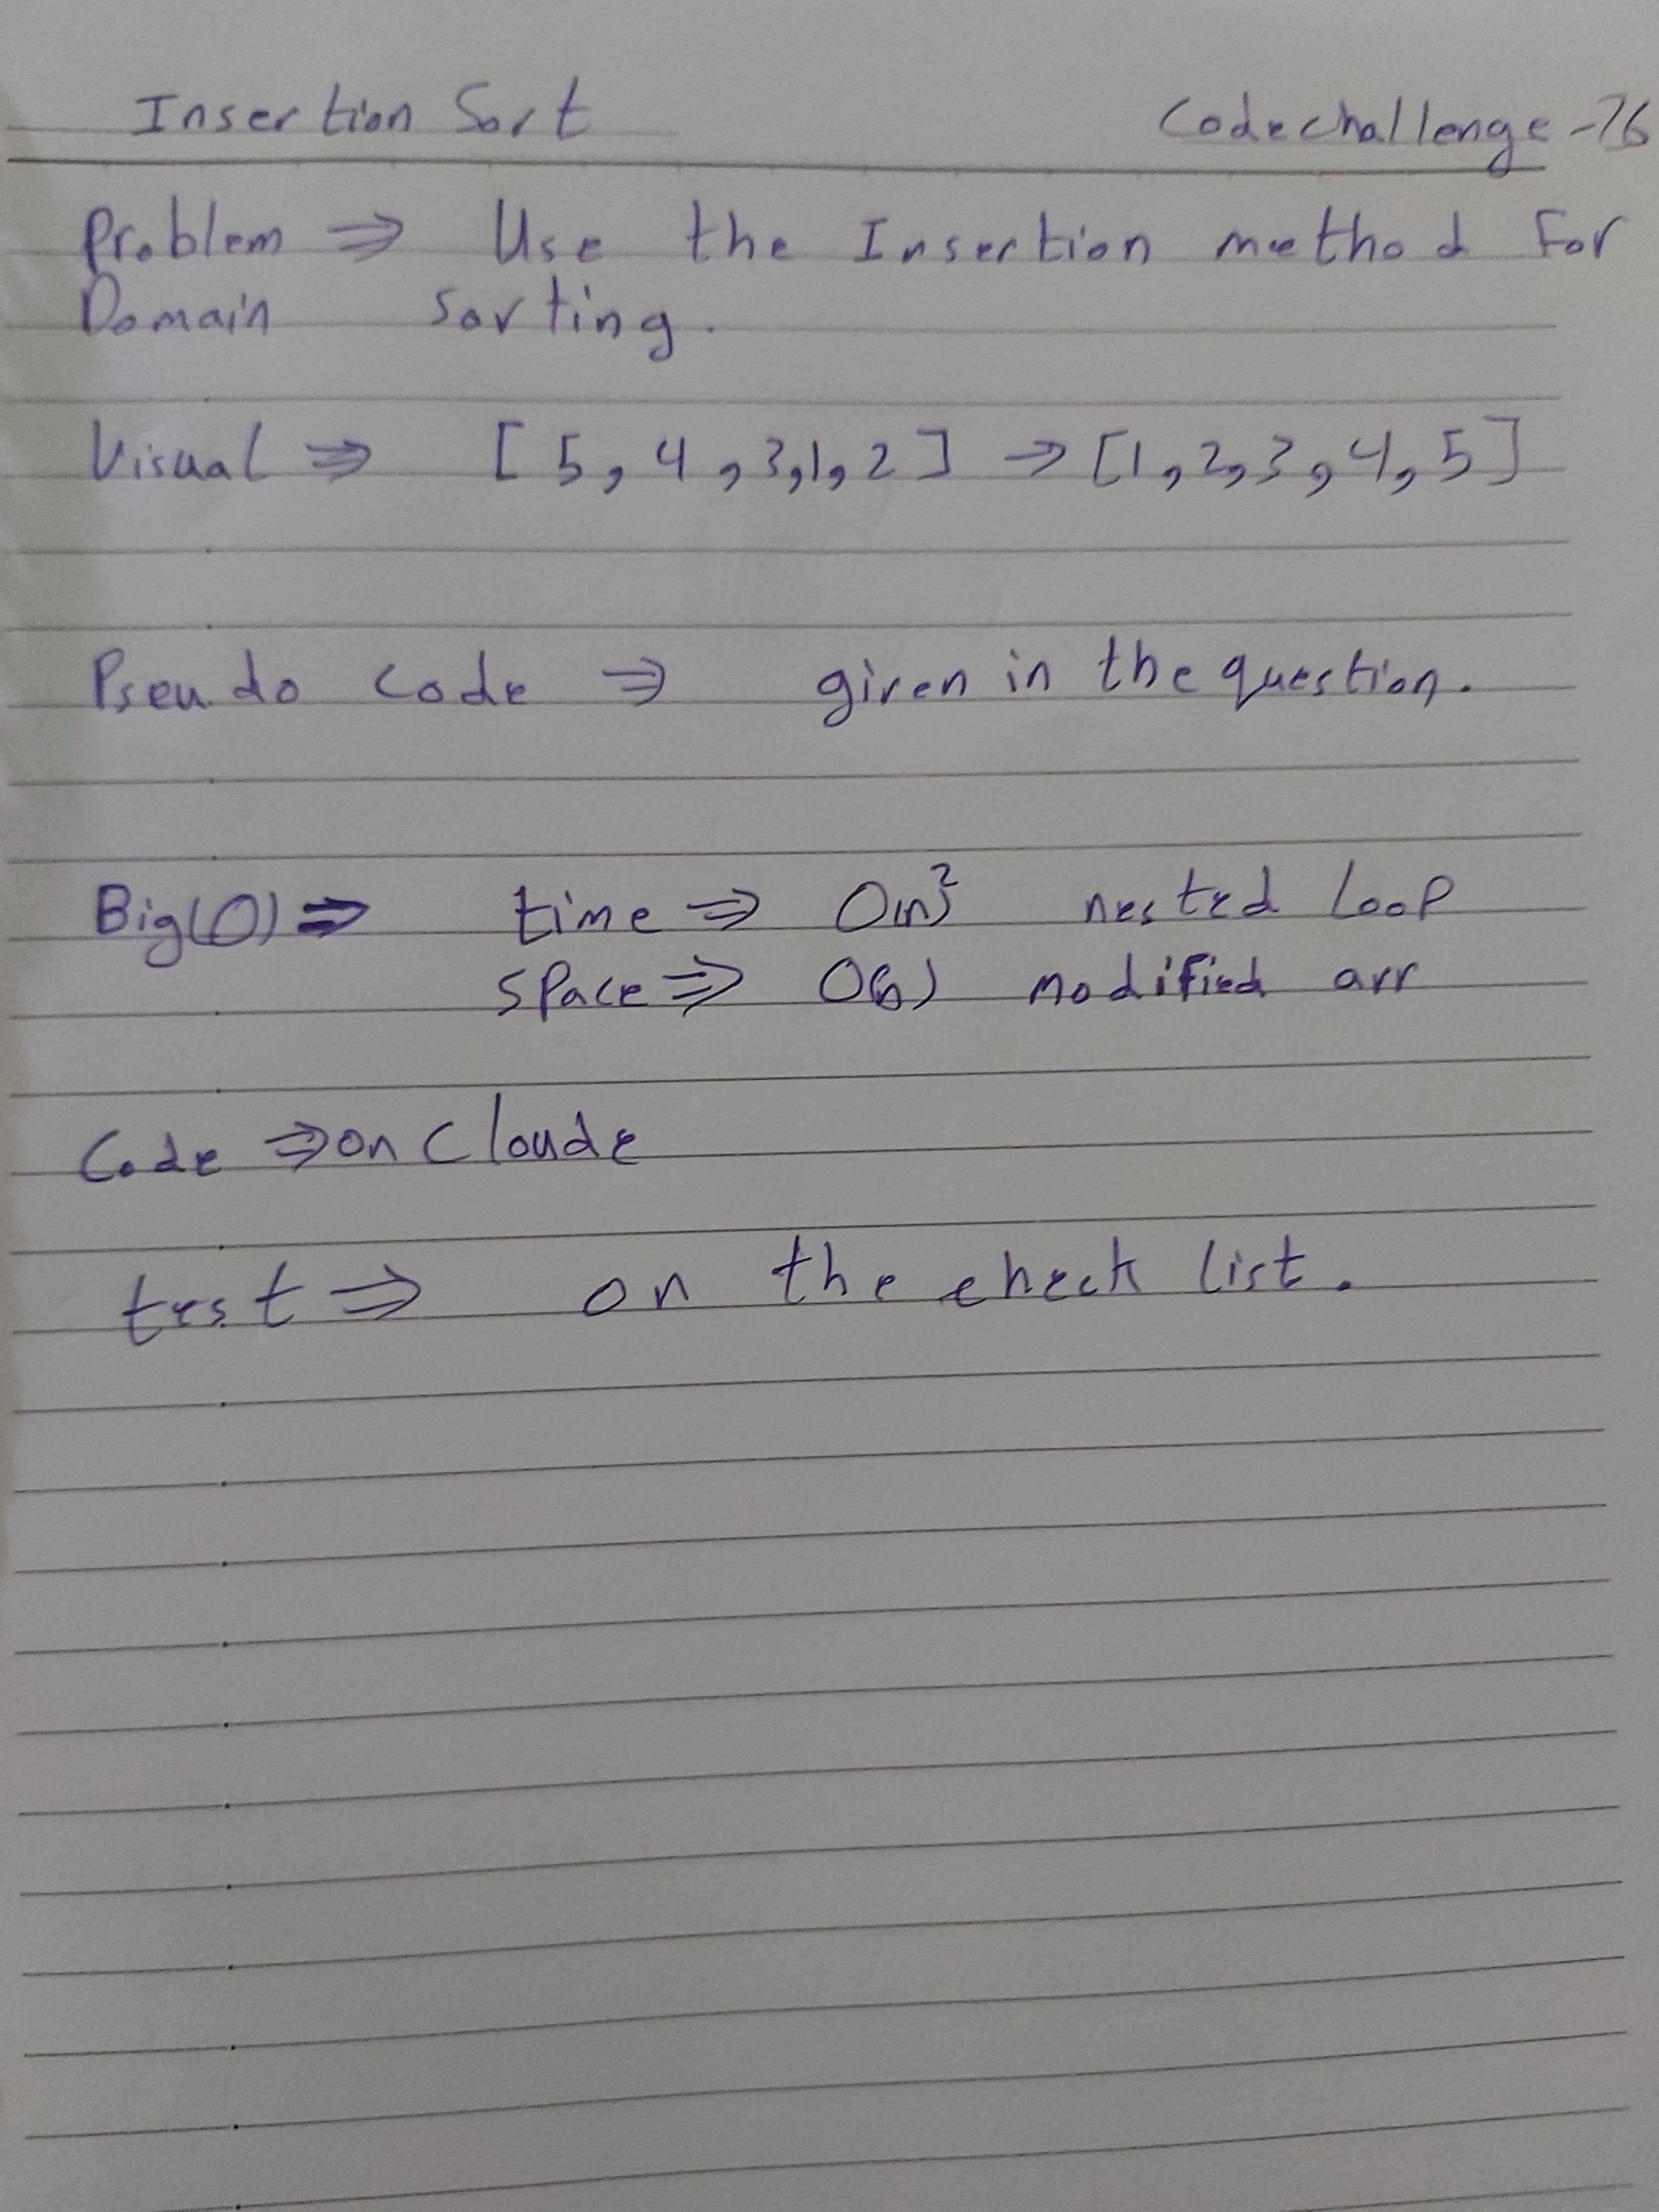 Insertion Sort Codechallenge-26
Problem ⇒ Use the Insertion method For
Domain sorting.
Visual ⇒ [5,4,3,1,2] → [1,2,3,4,5]
Pseudo code ⇒ given in the question.
Big(O) ⇒ time ⇒ O(n)² nested Loop
space ⇒ O(n) modified arr
Code ⇒ on Cloude
test ⇒ on the check list.